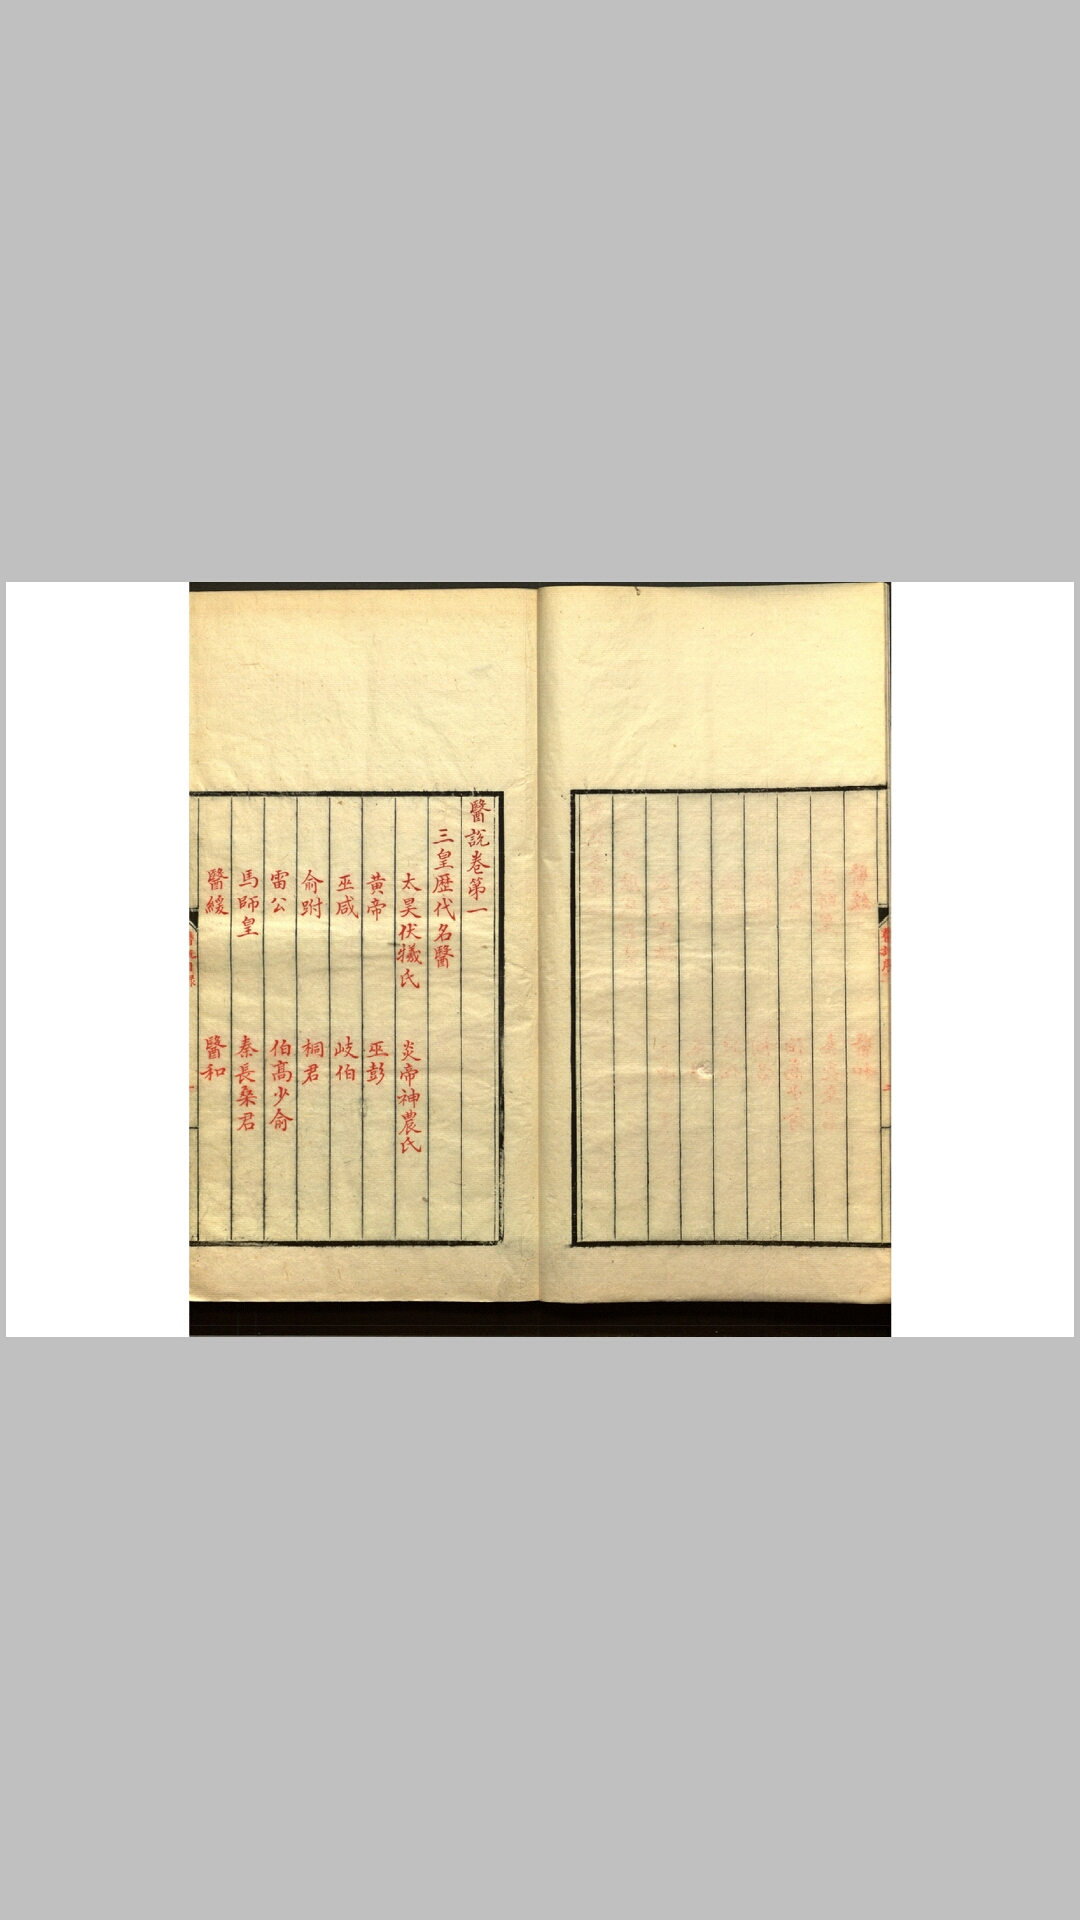 醫說卷第一
三皇歴代名醫
太昊伏犧氏　炎帝神農氏
黄帝　巫彭
巫咸　岐伯
俞跗　桐君
雷公　伯髙少俞
馬師皇　秦長桑君
醫緩　醫和